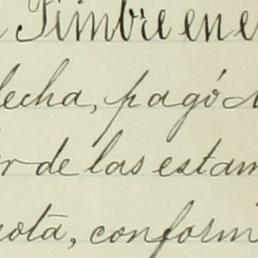 Timbre en e
fecha, pagó
r de las estam
ota, conform